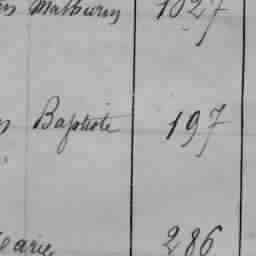 Mathurin 1027
Baptiste 197
Marie 286